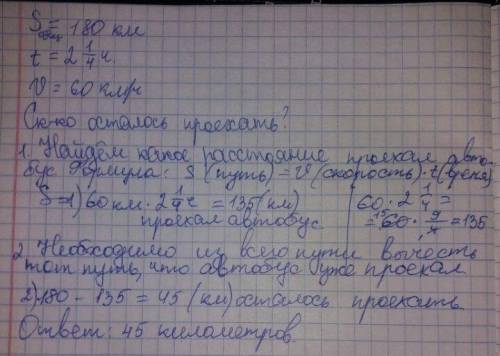 Sобщ = 180 км
t = 2 1/4 ч.
V = 60 км/ч
Ск-ко осталось проехать?
1. Найдём какое расстояние проехал авто-
бус. Формула: S (путь) = V (скорость) · t (время)
S = 1) 60 км · 2 1/4 ч = 135 (км)
проехал автобус
60 · 2 1/4 =
= 15 60 · 9/4 = 135
2. Необходимо из всего пути вычесть
тот путь, что автобус уже проехал
2) 180 - 135 = 45 (км) осталось проехать
Ответ: 45 километров.